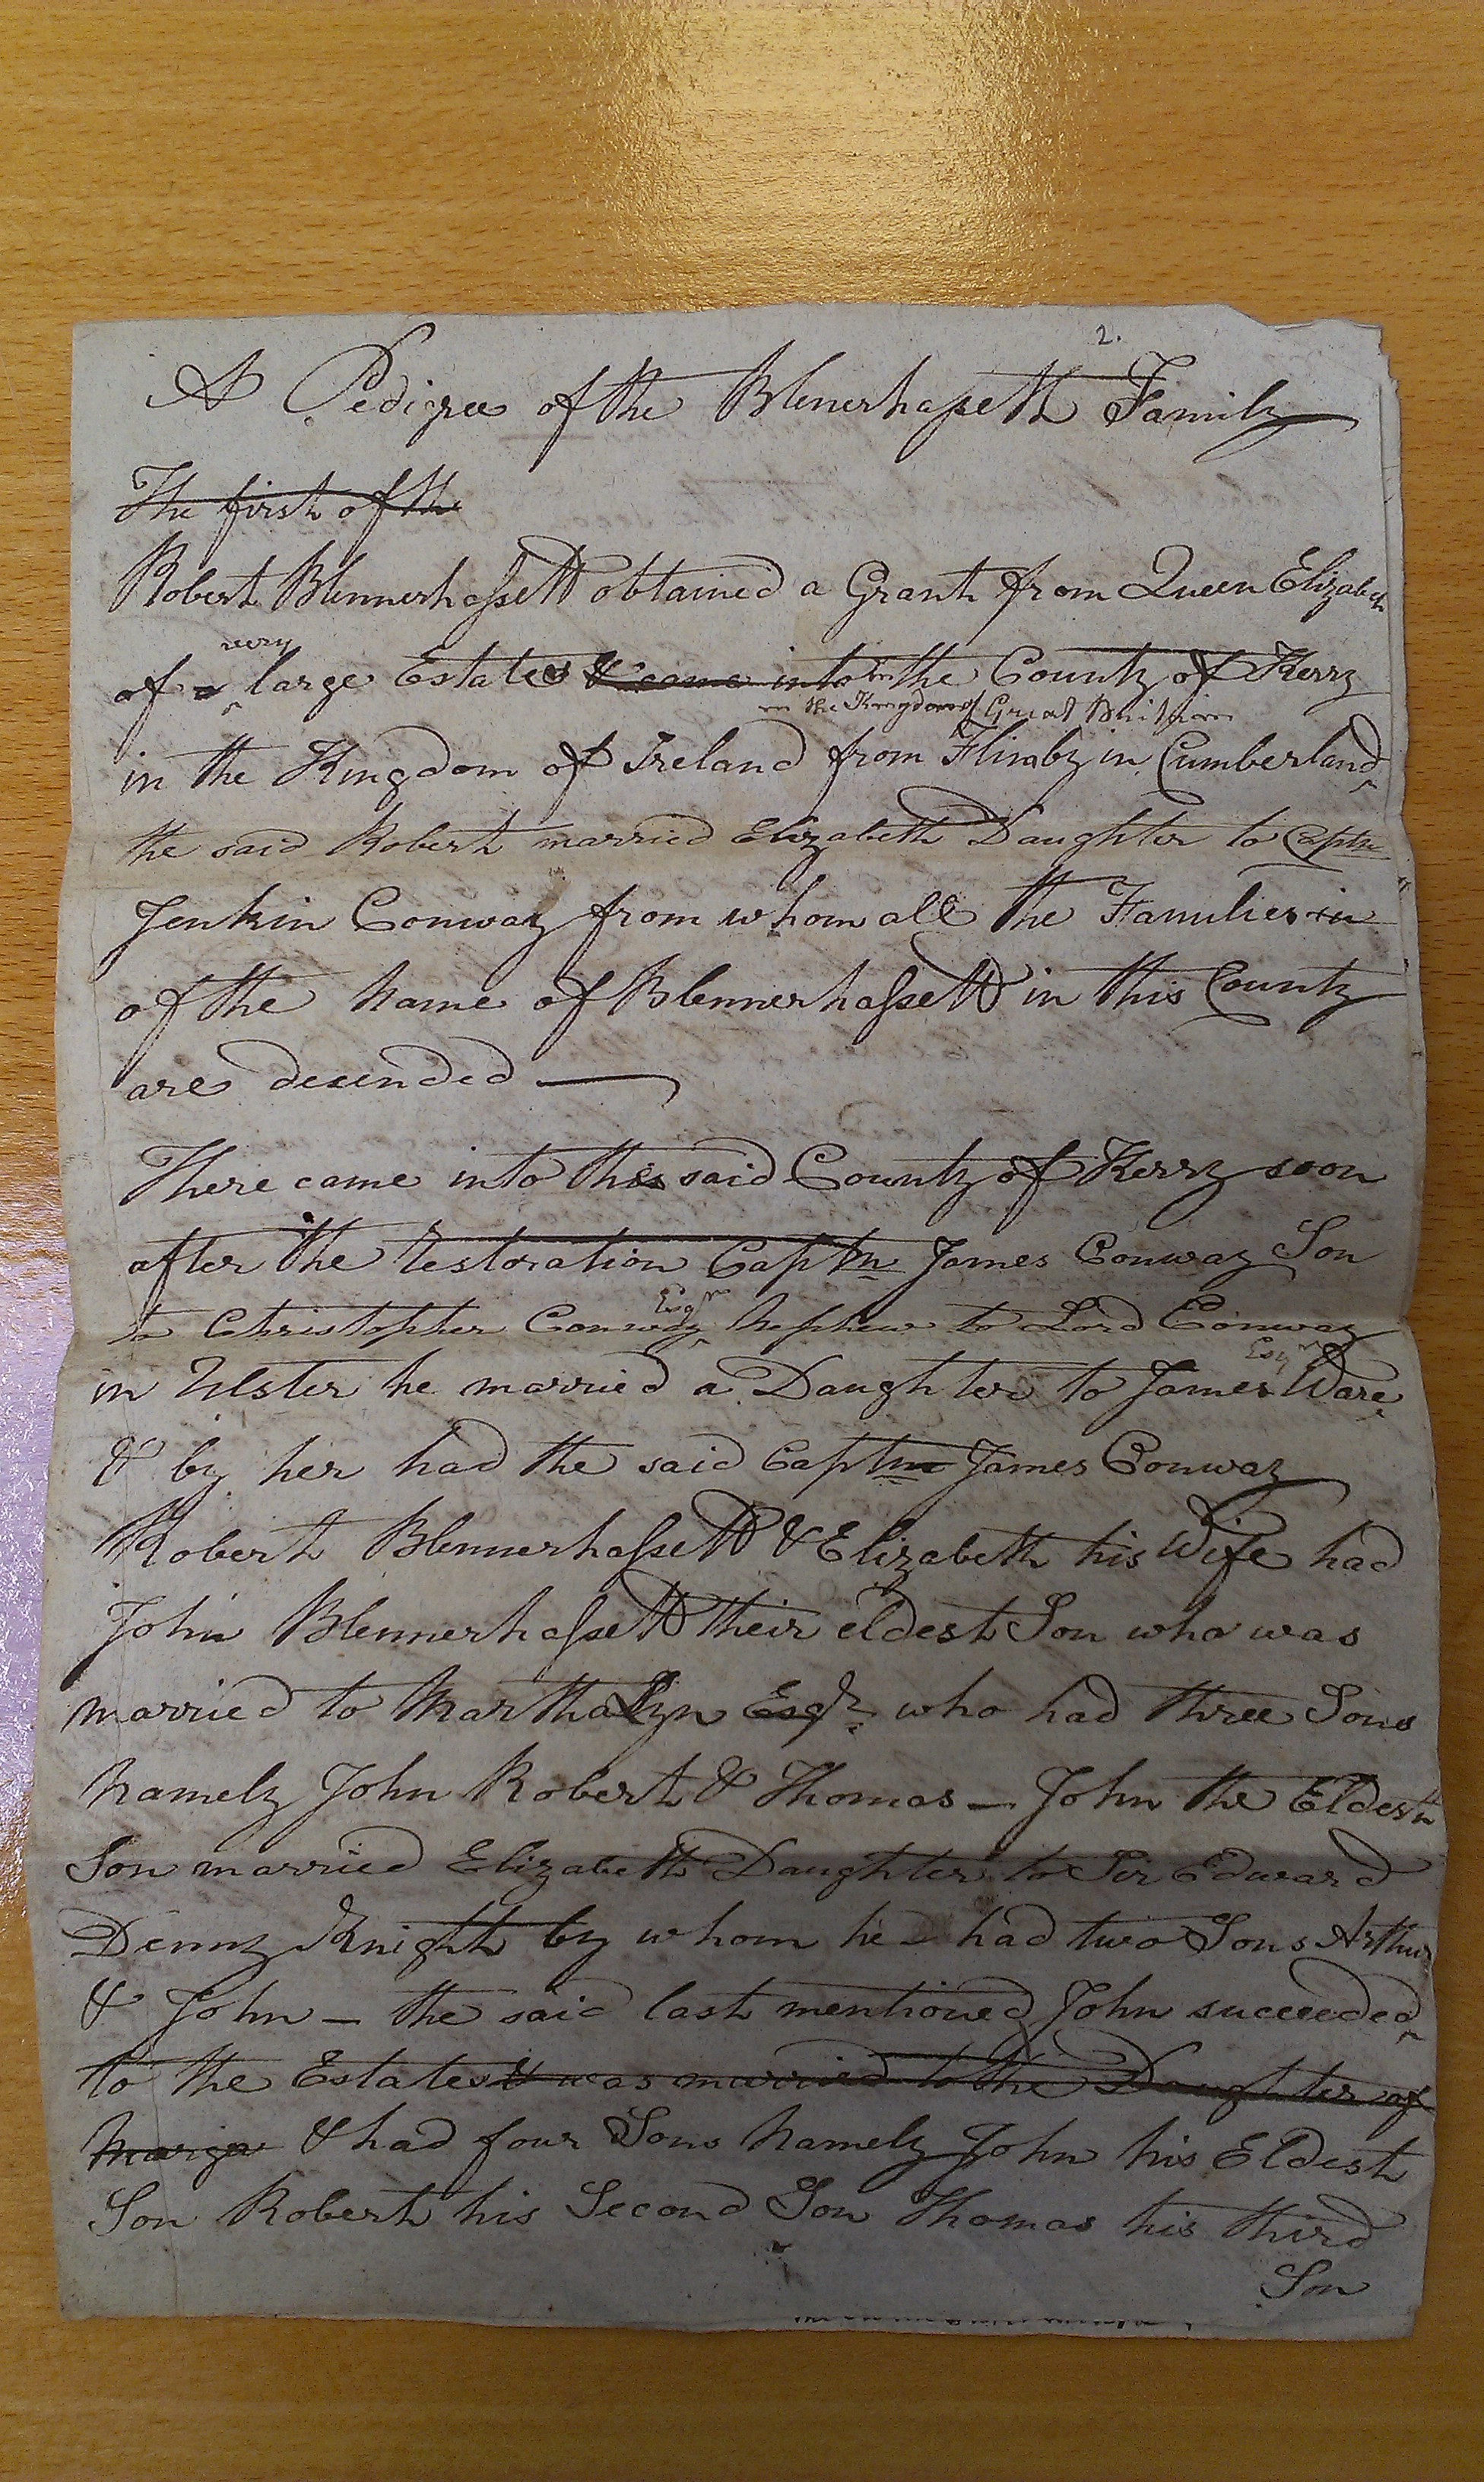 2.
A Pedigree of the Blenerhassett Family
The first of the
Robert Blennerhassett obtained a Grant from Queen Elizabeth
very
of a large Estate & came into in the County of Kerry
in the Kingdom of Great Britain
in the Kingdom of Ireland from Flimby in Cumberland
the said Robert married Elizabeth Daughter to Captn
Jenkin Conway from whom all the Families in
of the Name of Blennerhassett in this County
are desended —
There came into the said County of Kerry soon
after the restoration Captn James Conway Son
Esqr
to Christopher Conway Nephew to Lord Conway
Esqr
in Ulster he married a Daughter to James Ware
& by her had the said Captn James Conway
Robert Blennerhassett & Elizabeth his Wife had
John Blennerhassett their eldest Son who was
married to Martha Lyn Esqr who had three Sons
Namely John Robert & Thomas — John the Eldest
Son married Elizabeth Daughter to Sir Edward
Denny Knight by whom he had two Sons Arthur
& John — the said last mentioned John succeeded
to the Estates & was married to the Daughter of
& had four Sons Namely John his Eldest
Son Robert his Second Son Thomas his third
Son